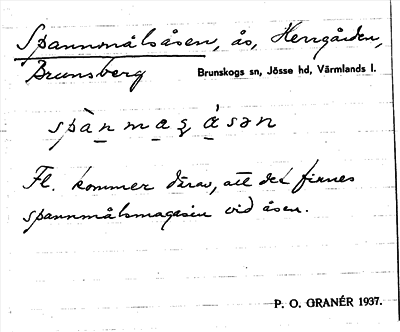 Spannmålsåsen, ås, Herrgården,
Brunsberg Brunskogs sn, Jösse hd, Värmlands l.
spànmaꞩ ásən
Fl. kommer därav, att det finnes
spannmålsmagasin vid åsen.
P. O. GRANÉR 1937.